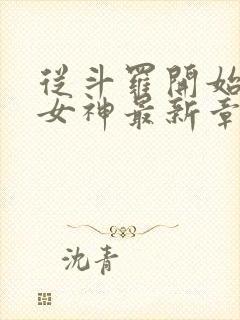 從斗羅開始
女神最新章
沈青